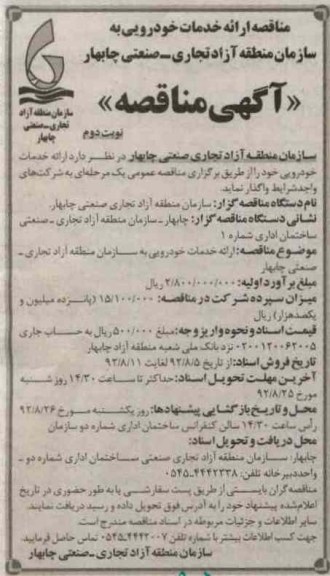 مناقصه ارائه خدمات خودرویی به
سازمان منطقه آزاد تجاری ـ صنعتی چابهار
«آگهی مناقصه»
نوبت دوم
سازمان منطقه آزاد
تجاری ـ صنعتی
چابهار
سازمان منطقه آزاد تجاری صنعتی چابهار در نظر دارد ارائه خدمات
خودرویی خود را از طریق برگزاری مناقصه عمومی یک مرحله‌ای به شرکت‌های
واجد شرایط واگذار نماید.
نام دستگاه مناقصه گزار: سازمان منطقه آزاد تجاری صنعتی چابهار.
نشانی دستگاه مناقصه گزار: چابهار ـ سازمان منطقه آزاد تجاری ـ صنعتی
ساختمان اداری شماره ۱
موضوع مناقصه: ارائه خدمات خودرویی به سازمان منطقه آزاد تجاری ـ
صنعتی چابهار
مبلغ برآورد اولیه: ۲/۸۰۰/۰۰۰/۰۰۰ ریال
میزان سپرده شرکت در مناقصه: ۱۵/۱۰۰/۰۰۰ (پانزده میلیون و
یکصدهزار) ریال
قیمت اسناد و نحوه واریز وجه: مبلغ ۵۰۰/۰۰۰ ریال به حساب جاری
۰۲۰۰۱۲۰۰۶۲۰۰۵ نزد بانک ملی شعبه منطقه آزاد چابهار
تاریخ فروش اسناد: از تاریخ ۹۲/۸/۵ لغایت ۹۲/۸/۱۱
آخرین مهلت تحویل اسناد: حداکثر تا ساعت ۱۴/۳۰ روز شنبه
مورخ ۹۲/۸/۲۵
محل و تاریخ بازگشایی پیشنهادها: روز یکشنبه مورخ ۹۲/۸/۲۶
رأس ساعت ۱۴/۳۰ سالن کنفرانس ساختمان اداری شماره دو سازمان
محل دریافت و تحویل اسناد:
چابهار: سازمان منطقه آزاد تجاری صنعتی ساختمان اداری شماره دو ـ
واحد دبیرخانه تلفن: ۴۴۴۲۳۳۸-۰۵۴۵
مناقصه گران بایستی از طریق پست سفارشی یا به طور حضوری در تاریخ
اعلام شده پیشنهاد خود را به آدرس فوق تحویل داده و رسید دریافت نمایند.
سایر اطلاعات و جزئیات مربوطه در اسناد مناقصه مندرج است.
جهت کسب اطلاعات بیشتر با شماره تلفن ۴۴۴۲۰۰۷-۰۵۴۵ تماس حاصل فرمایید.
سازمان منطقه آزاد تجاری ـ صنعتی چابهار